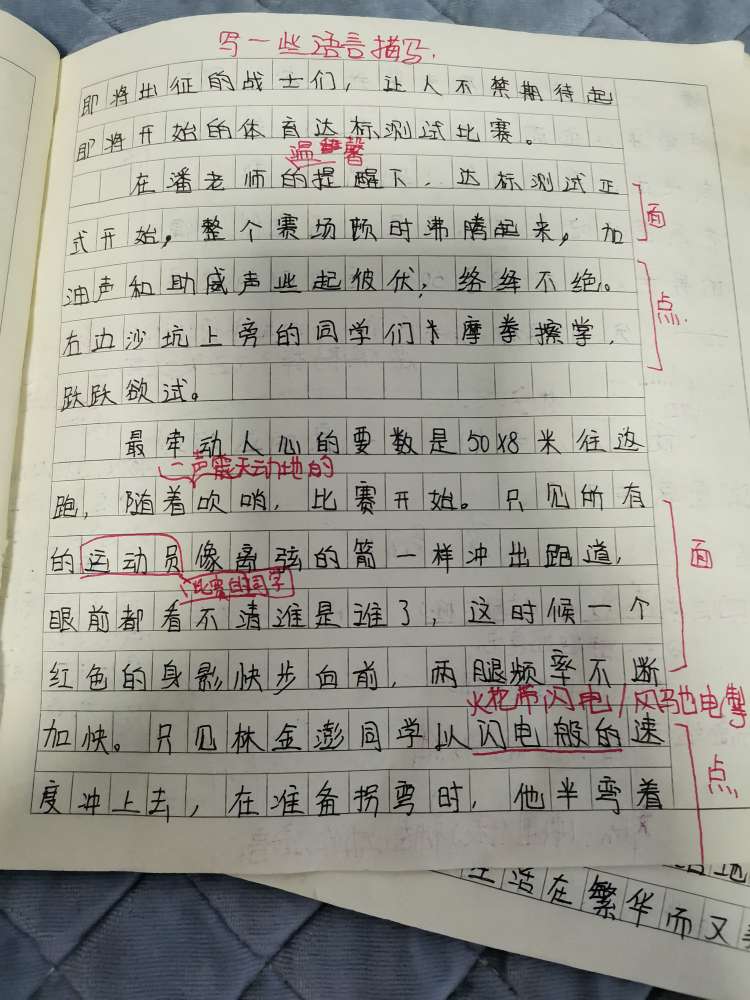 写一些语言描写.
即将出征的战士们，让人不禁期待起
即将开始的体育达标测试比赛。
温馨
在潘老师的提醒下，达标测试正
面
式开始，整个赛场顿时沸腾起来，加
油声和助威声此起彼伏，络绎不绝。
点.
右边沙坑上旁的同学们摩拳擦掌，
跃跃欲试。
最牵动人心的要数是50X8米往返
一声震天动地的
跑，随着吹哨，比赛开始。只见所有
的运动员像离弦的箭一样冲出跑道，
面
比赛的同学
眼前都看不清谁是谁了，这时候一个
红色的身影快步向前，两腿频率不断
火花带闪电/风驰电掣
加快。只见林金澎同学以闪电般的速
点
度冲上去，在准备拐弯时，他半弯着
生活在繁华而又